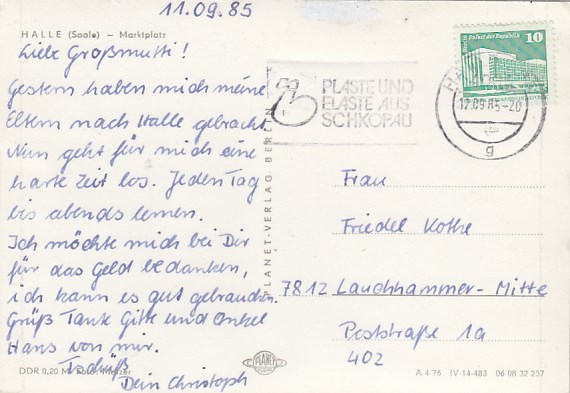 11.09.85
HALLE (Saale) – Marktplatz
Liebe Großmutti!
Gestern haben mich meine
Eltern nach Halle gebracht.
Nun geht für mich eine
harte Zeit los. Jeden Tag
bis abends lernen.
Ich möchte mich bei Dir
für das Geld bedanken,
ich kann es gut gebrauchen.
Grüß Tante Gitte und Onkel
Hans von mir.
Tschüß
Dein Christoph
DDR 0,20 M
PLANET-VERLAG BERLIN
PLANET
PLASTE UND
ELASTE AUS
SCHKOPAU
Berlin, Palast der Republik
10
12.09.85-20
g
Frau
Friedel Kothe
7812 Lauchhammer-Mitte
Poststraße 1a
402
A 4-76 IV-14-483 06 08 32 257